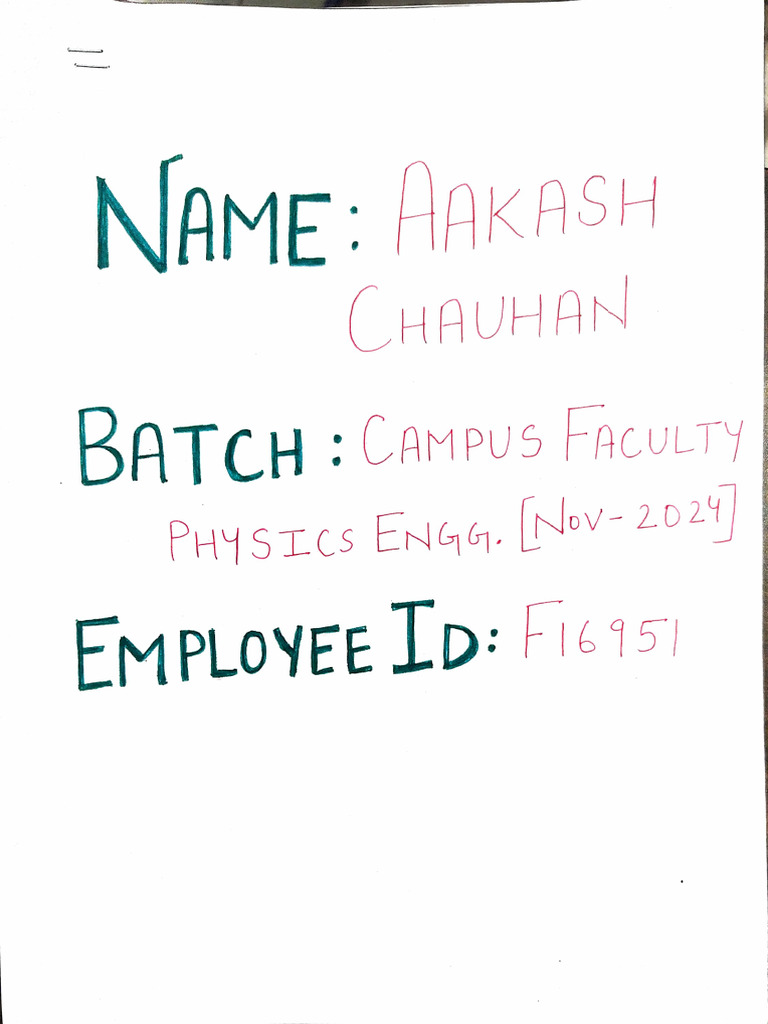 NAME: AAKASH
CHAUHAN
BATCH: CAMPUS FACULTY
PHYSICS ENGG. [NOV-2024]
EMPLOYEE ID: F16951